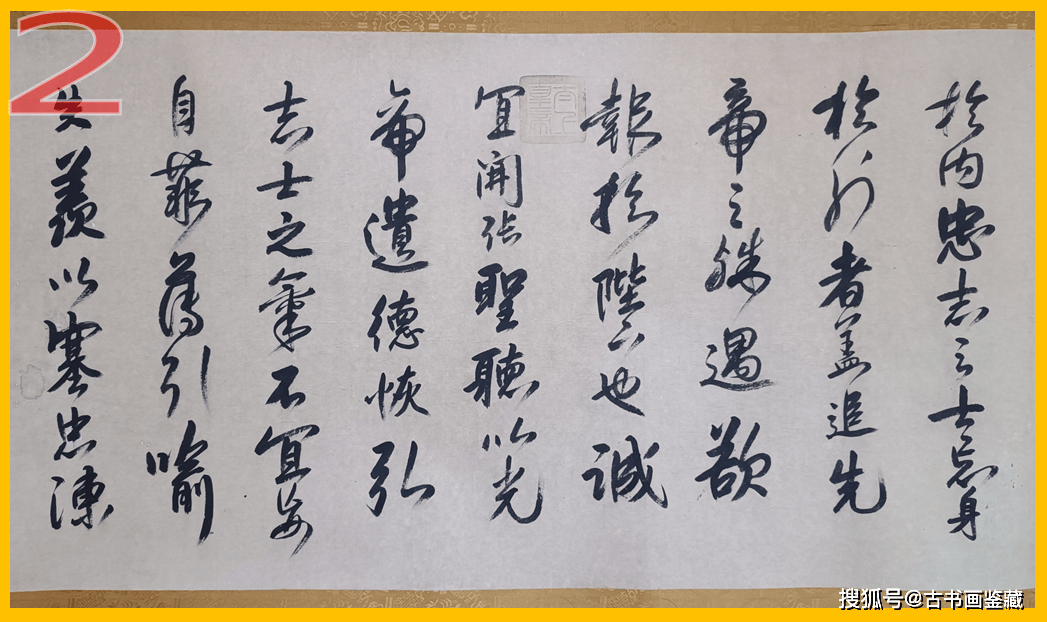 2
於内忠志之士忘身
於外者盖追先
帝之殊遇欲
報於陛下也誠
宜開張聖聽以光
帝遺德恢弘
志士之氣不宜妄
自菲薄引喻
失義以塞忠諫
搜狐号@古书画鉴藏